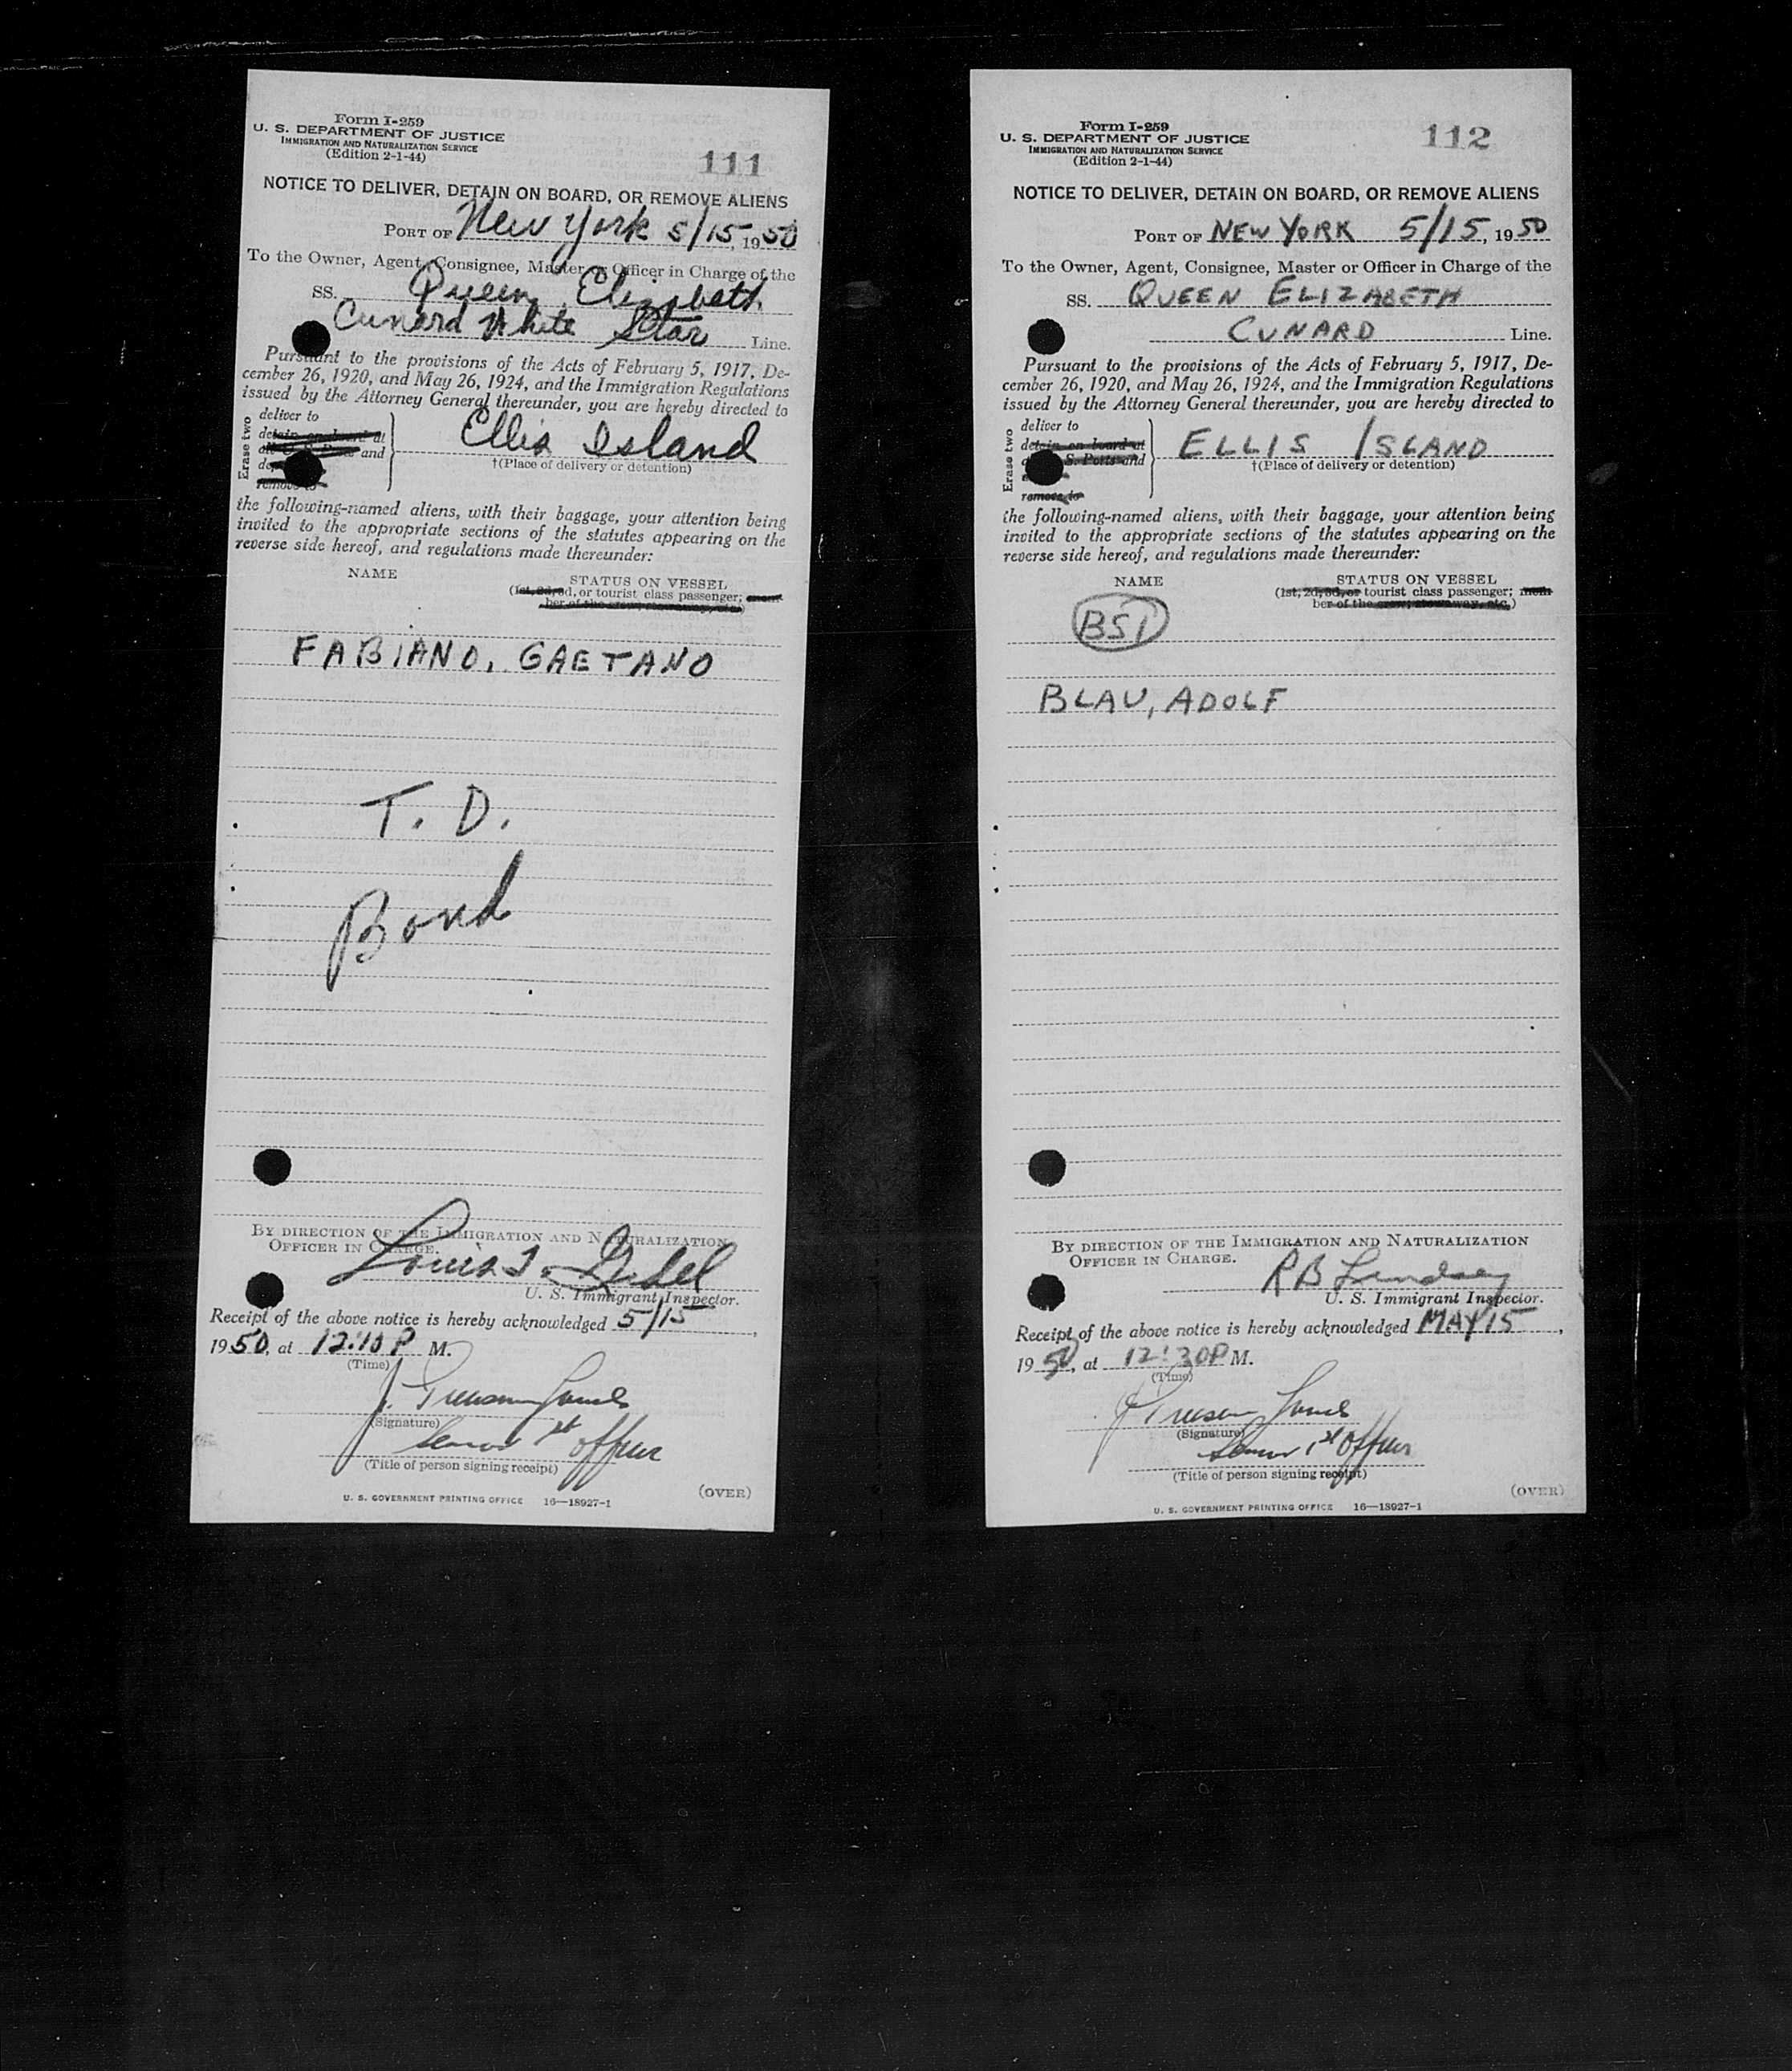 Form I-259
U. S. DEPARTMENT OF JUSTICE
IMMIGRATION AND NATURALIZATION SERVICE
(Edition 2-1-44)
111
NOTICE TO DELIVER, DETAIN ON BOARD, OR REMOVE ALIENS
PORT OF New York 5/15, 1950
To the Owner, Agent, Consignee, Master or Officer in Charge of the
SS. Queen Elizabeth
Cunard White Star Line.
Pursuant to the provisions of the Acts of February 5, 1917, De-
cember 26, 1920, and May 26, 1924, and the Immigration Regulations
issued by the Attorney General thereunder, you are hereby directed to
Erase two
deliver to
detain on board at
and
remove to
Ellis Island
†(Place of delivery or detention)
the following-named aliens, with their baggage, your attention being
invited to the appropriate sections of the statutes appearing on the
reverse side hereof, and regulations made thereunder:
NAME
STATUS ON VESSEL
(1st, 2d, 3d, or tourist class passenger; mem-
ber of the crew; stowaway, etc.)
FABIANO, GAETANO
T. D.
Bond
BY DIRECTION OF THE IMMIGRATION AND NATURALIZATION
OFFICER IN CHARGE.
Louis
U. S. Immigrant Inspector.
Receipt of the above notice is hereby acknowledged 5/15,
1950, at 12:10 P M.
(Time)
J.
(Signature)
Senior 1st Officer
(Title of person signing receipt)
(OVER)
U. S. GOVERNMENT PRINTING OFFICE 16—18927-1
Form I-259
U. S. DEPARTMENT OF JUSTICE
IMMIGRATION AND NATURALIZATION SERVICE
(Edition 2-1-44)
112
NOTICE TO DELIVER, DETAIN ON BOARD, OR REMOVE ALIENS
PORT OF NEW YORK 5/15, 1950
To the Owner, Agent, Consignee, Master or Officer in Charge of the
SS. QUEEN ELIZABETH
CUNARD Line.
Pursuant to the provisions of the Acts of February 5, 1917, De-
cember 26, 1920, and May 26, 1924, and the Immigration Regulations
issued by the Attorney General thereunder, you are hereby directed to
Erase two
deliver to
detain on board at
S. Ports and
remove to
ELLIS ISLAND
†(Place of delivery or detention)
the following-named aliens, with their baggage, your attention being
invited to the appropriate sections of the statutes appearing on the
reverse side hereof, and regulations made thereunder:
NAME
STATUS ON VESSEL
(1st, 2d, 3d, or tourist class passenger; mem-
ber of the crew; stowaway, etc.)
BSI
BLAU, ADOLF
BY DIRECTION OF THE IMMIGRATION AND NATURALIZATION
OFFICER IN CHARGE.
R B Lindsey
U. S. Immigrant Inspector.
Receipt of the above notice is hereby acknowledged MAY 15,
1950, at 12:30P M.
(Time)
(Signature)
Senior 1st Officer
(Title of person signing receipt)
(OVER)
U. S. GOVERNMENT PRINTING OFFICE 16—18927-1